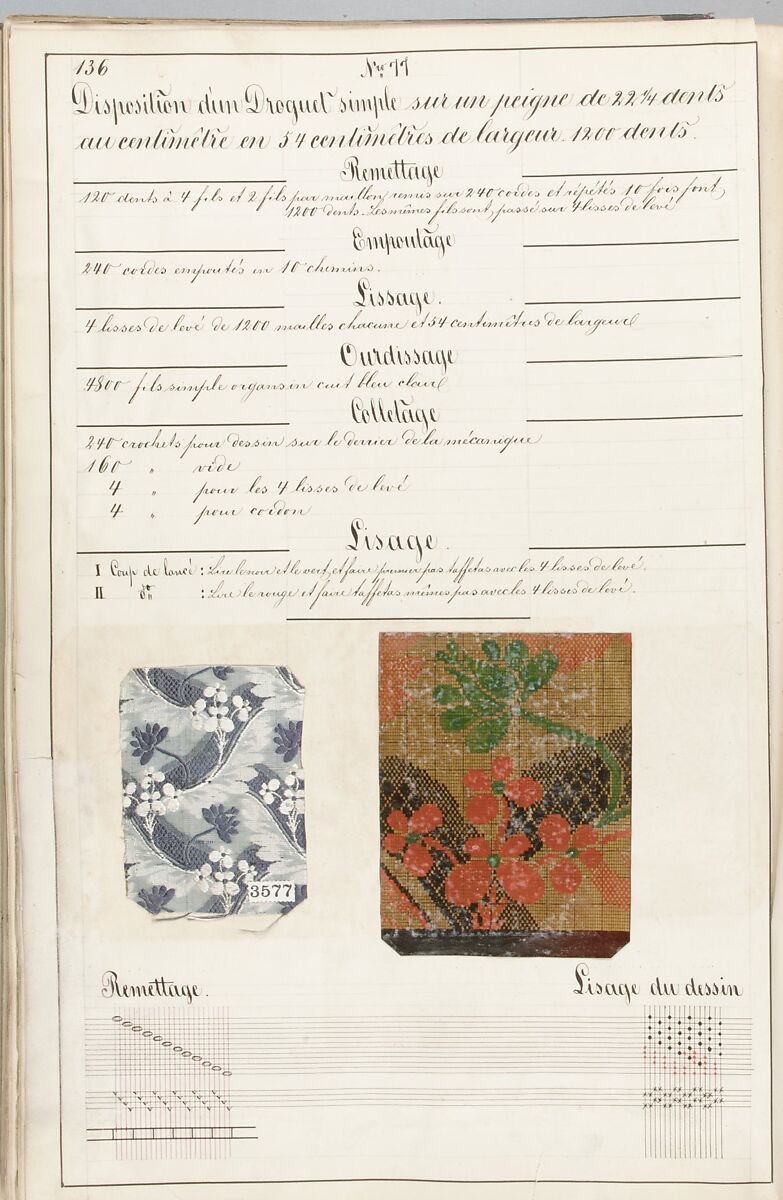 136
Nro 77
Disposition d'un Droguet simple sur un peigne de 22 1/4 dents
au centimêtre en 54 centimêtres de largeur. 1200 dents.
Remettage
120 dents à 4 fils et 2 fils par maillon, remis sur 240 cordes et répétés 10 fois font
1200 dents. Les mêmes fils sont passé sur 4 lisses de levé
Empoutage
240 cordes empoutés en 10 chemins.
Lissage.
4 lisses de levé de 1200 mailles chacune et 54 centimêtres de largeur
Ourdissage
4800 fils simple organsin cuit bleu clair
Colletage
240 crochets pour dessin sur le derrier de la mécanique
160 " vide
4 " pour les 4 lisses de levé
4 " pour cordon
Lisage.
I Coup de lancé : Lire le noir et le vert, et faire premier pas taffetas avec les 4 lisses de levé.
II do " : Lire le rouge et faire taffetas mêmes pas avec les 4 lisses de levé.
3577
Remettage.
Lisage du dessin